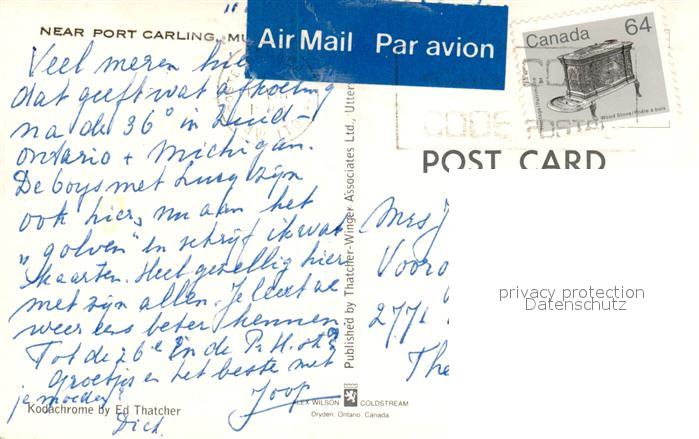 NEAR PORT CARLING, MU
Air Mail Par avion
Canada 64
Wood Stove/Poêle à bois
CODE POSTAL
POST CARD
Veel meren hie
dat geeft wat afkoeling
na de 36° in Zuid-
ontario + Michigan.
De boys met Lucy zijn
ook hier, nu aan het
"golven" en schrijf ik wat
kaarten. Heel gezellig hier
met zijn allen. Je leert ze
weer eens beter kennen
Tot de 26e en de P.H.
Groetjes en het beste met
je moeder!
Joop
Dick.
Mrs J
Vooro
2771
The
privacy protection
Datenschutz
Published by Thatcher-Winger Associates Ltd., Utter
Kodachrome by Ed Thatcher
LEX WILSON COLDSTREAM
Dryden, Ontario, Canada